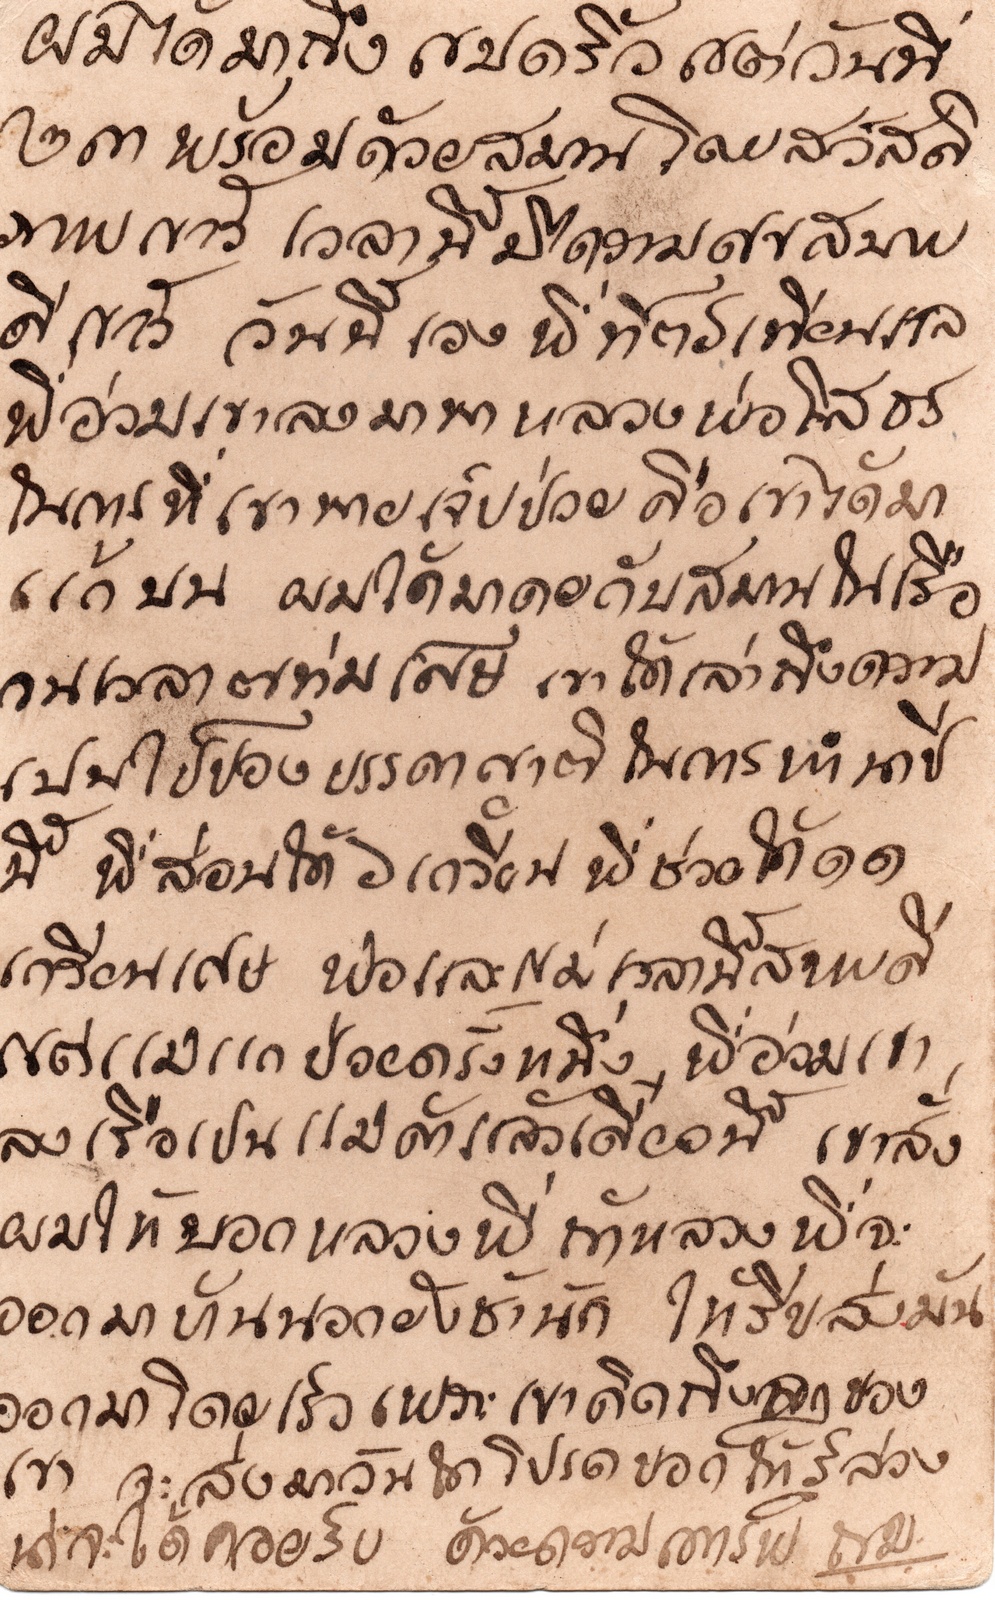 ผมได้มาถึง แปดริ้ว แต่วันที่
๒๓ พร้อมด้วยสมาน โดยสวัสดิ
ภาพ เวลานี้มีความศุขสบาย
ดี วันนี้เอง พี่ทิตย์เทียนแล
พี่อ่วมเขาลงมาหาหลวงพ่อโสธร
ในการที่เขาหายเจ็บป่วย คือเขาได้มา
แก้บน ผมได้มาคุยกับสมานในเรือ
จนเวลา ๗ ทุ่มเสษ เขาได้เล่าถึงความ
เปนไปของบรรดาญาติในการทำนาปี
นี้ พี่สอนได้ ๖ เกวียน พี่ช่วยได้ ๑๑
เกวียนเสษ พ่อและแม่เวลานี้สบายดี
แต่แม่แกป่วยครั้งหนึ่ง พี่อ่วมเขา
ลงเรือเปนแม่ค้าแล้วเดือนนี้ เขาสั่ง
ผมให้บอกหลวงพี่ ถ้าหลวงพี่จะ
ออกมาทันนอกยังช้านัก ให้รีบส่งมัน
ออกมาโดยเร็ว เพราะเขาคิดถึงลูกของ
เขา จะส่งมาวันใดโปรดบอกให้รู้ล่วง
น่าจะได้คอยรับ ด้วยความเคารพ ผม.